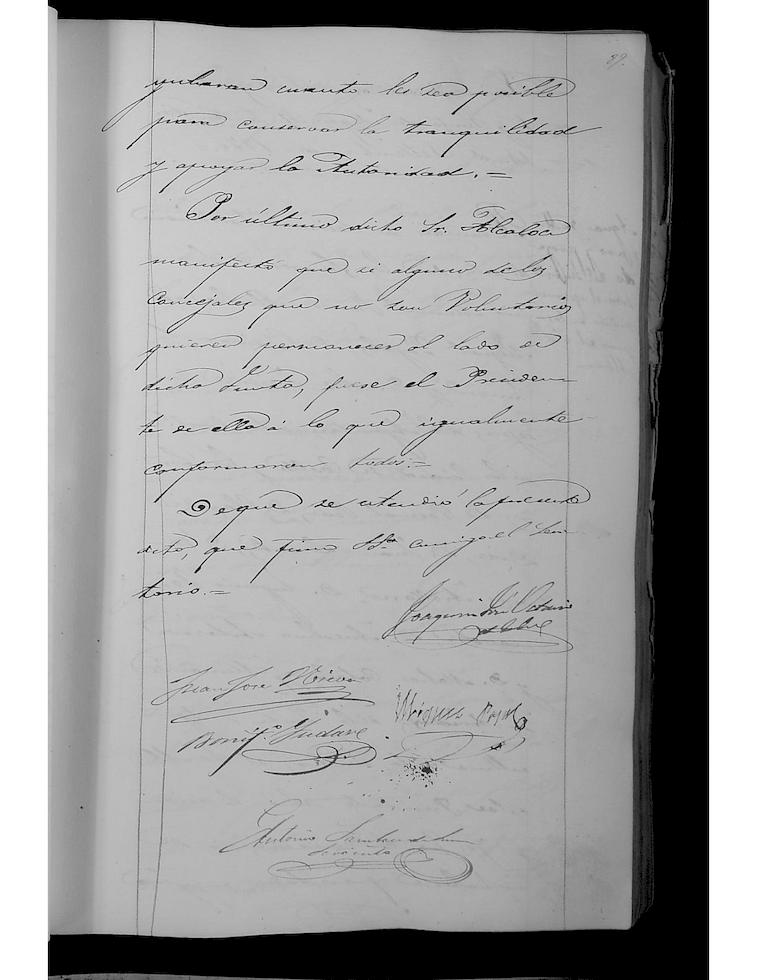 89.
yudaran cuanto les sea posible
para conservar la tranquilidad
y apoyar la Autoridad. =
Por último dicho Sr. Alcalde
manifestó que si alguno de los
Concejales que no son Voluntarios
quieren permanecer al lado de
dicha Junta, fuese el Presiden-
te de ella á lo que igualmente
conformaron todos. =
De que se estendió la presente
acta, que firma S. conmigo el Secre
tario. =
Joaquin José
Juan José
Miguel
Antonio